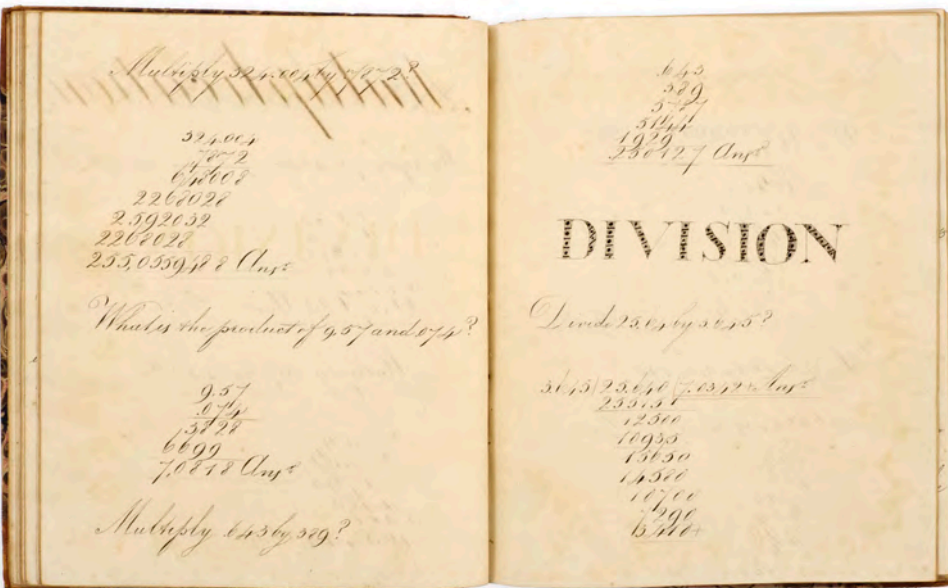 Multiply 324.004 by .7872?
324.004
.7872
648008
2268028
2592032
2268028
255,0559488 Ans
What is the product of 9.57 and .074?
9.57
.074
3828
6699
7.0818 Ans
Multiply .643 by .389?
.643
.389
5787
5144
1929
.250127 Ans
DIVISION
Divide 25.64 by 3.645?
3.645)25.640(7.0342+ Ans
25515
12500
10935
15650
14580
10700
7290
3410+